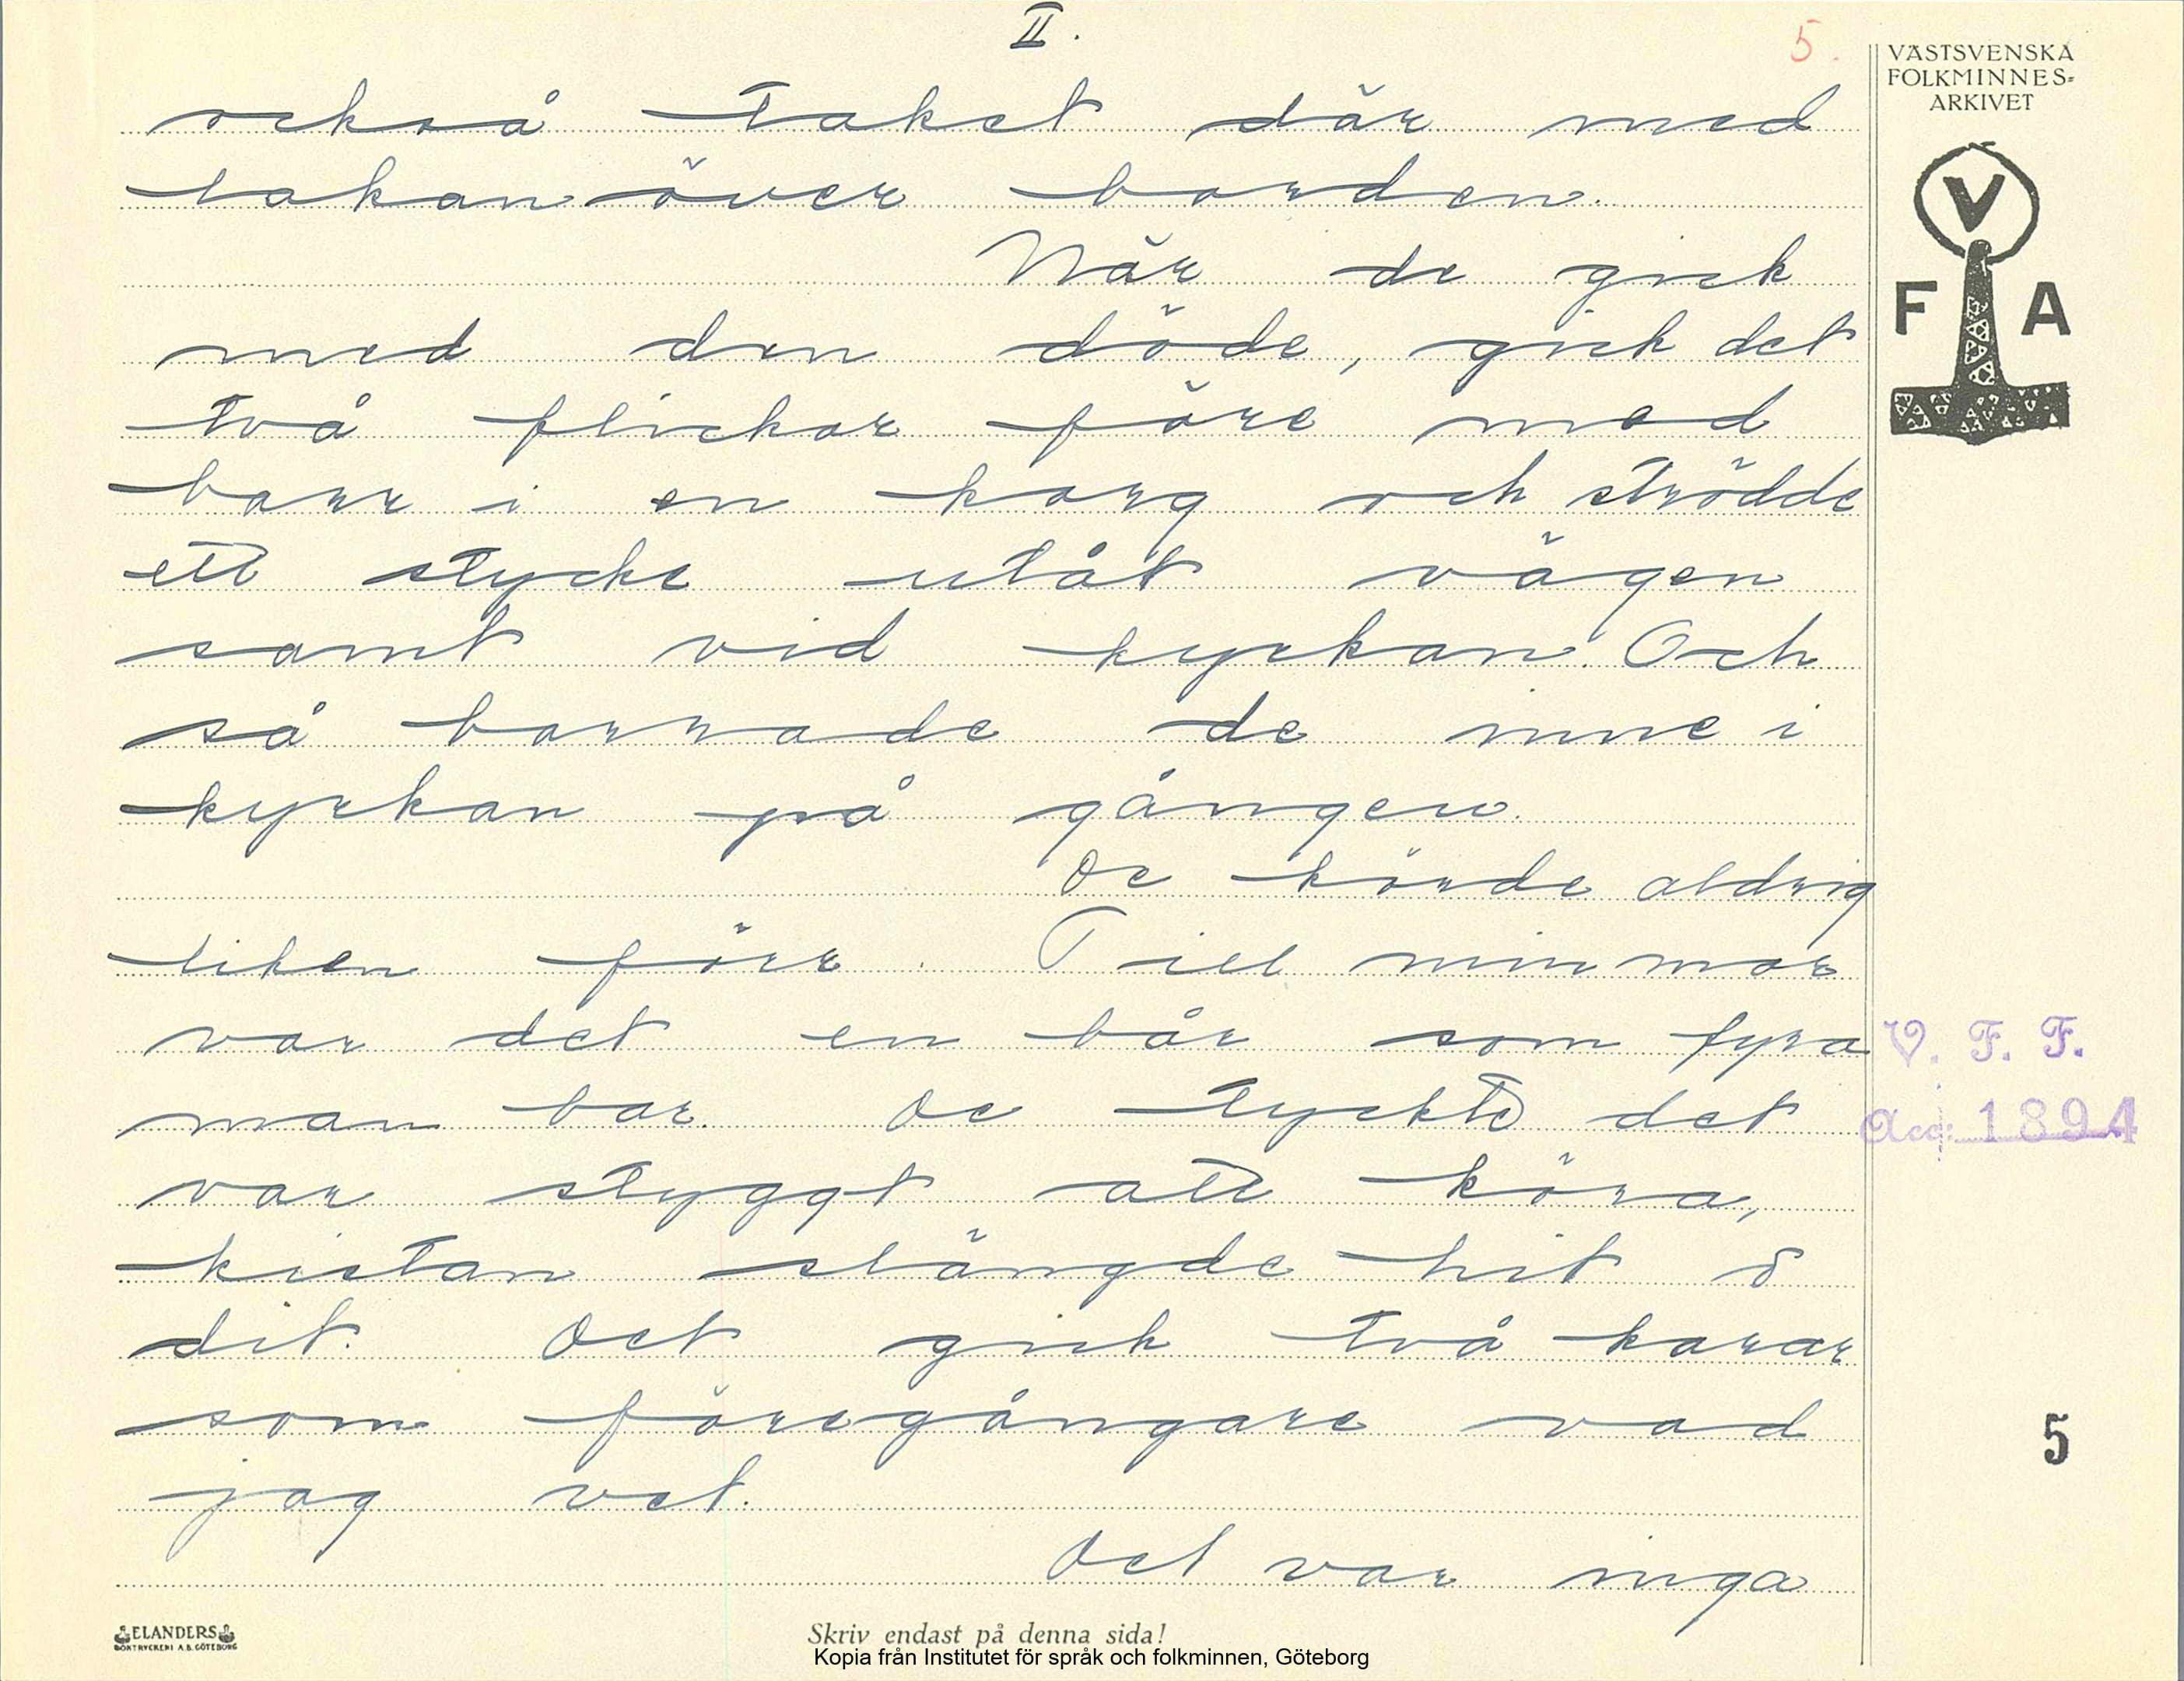 II.
5.
VÄSTSVENSKA
FOLKMINNES=
ARKIVET
V
F A
också taket där med
lakan över borden.
När de gick
med den döde, gick det
två flickor före med
barr i en korg och strödde
ett stycke utåt vägen
samt vid kyrkan. Och
så barrade de inne i
kyrkan på gången.
De körde aldrig
liken förr. Till min mor
var det en bår som fyra
man bar. De tyckte det
var styggt att köra,
kistan slängde hit o
dit. Det gick två karar
som föregångare vad
jag vet.
Det var inga
V. F. F.
Acc: 1894
5
ELANDERS
BOKTRYCKERI A.B. GÖTEBORG
Skriv endast på denna sida!
Kopia från Institutet för språk och folkminnen, Göteborg